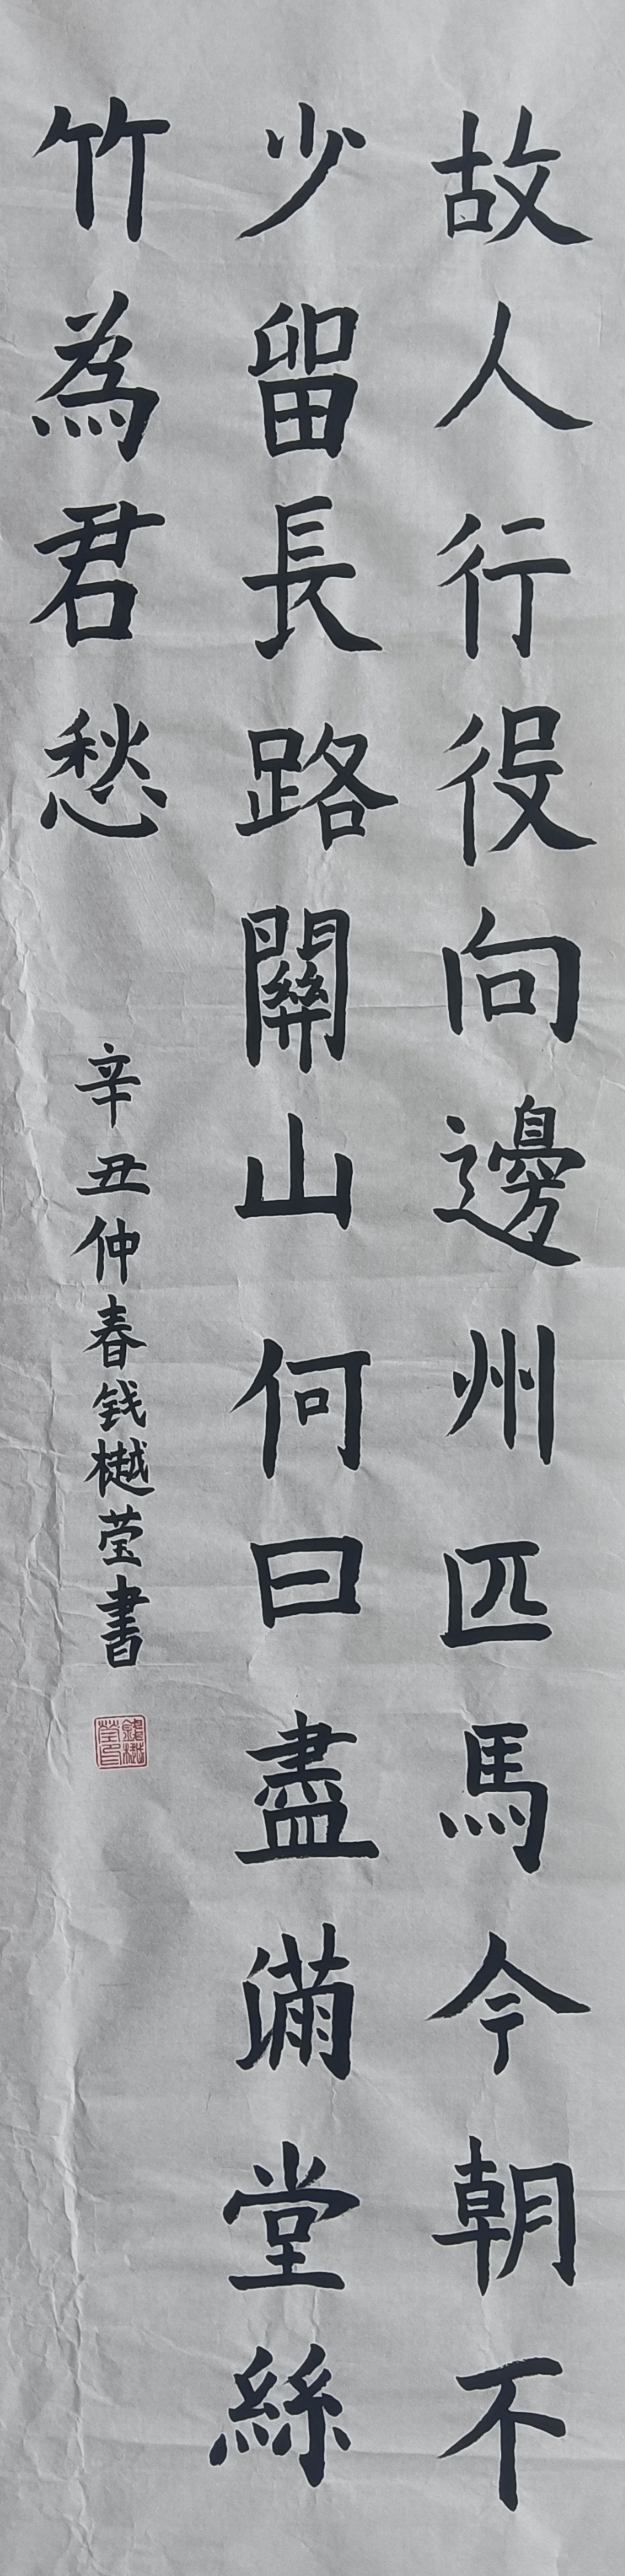 故人行役向邊州匹馬今朝不
少留長路關山何日盡滿堂絲
竹為君愁
辛丑仲春钱樾莹書